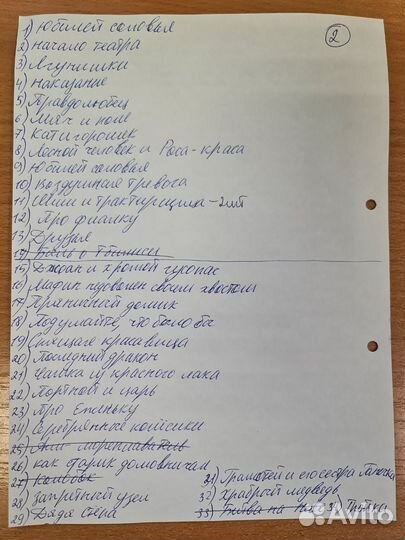 2
1) Юбилей соловья
2) Начало театра
3) Лгунишки
4) Наказание
5) Правдолюбец
6) Мяч и поле
7) Катигорошек
8) Лесной человек и Роса-краса
9) Юбилей соловья
10) Воздушная тревога
11) Свиньи и трактирщица - 2шт
12) Про фиалку
13) Друзья
14) Быль о Тбилиси
15) Джоан и хромой чухопас
16) Мафин недоволен своим хвостом
17) Пряничный домик
18) Подумайте, что было бы
19) Спящая красавица
20) Последний дракон
21) Чашка из красного лака
22) Портной и царь
23) Про Еженьку
24) Серебряные колосики
25) Ани мореплаватель
26) как старик домовничал
27) Колобок
28) Запретный узел
29) Дядя Стёпа
31) Грамотей и его сестра
32) Храбрый медведь
33) Битва на
Avito